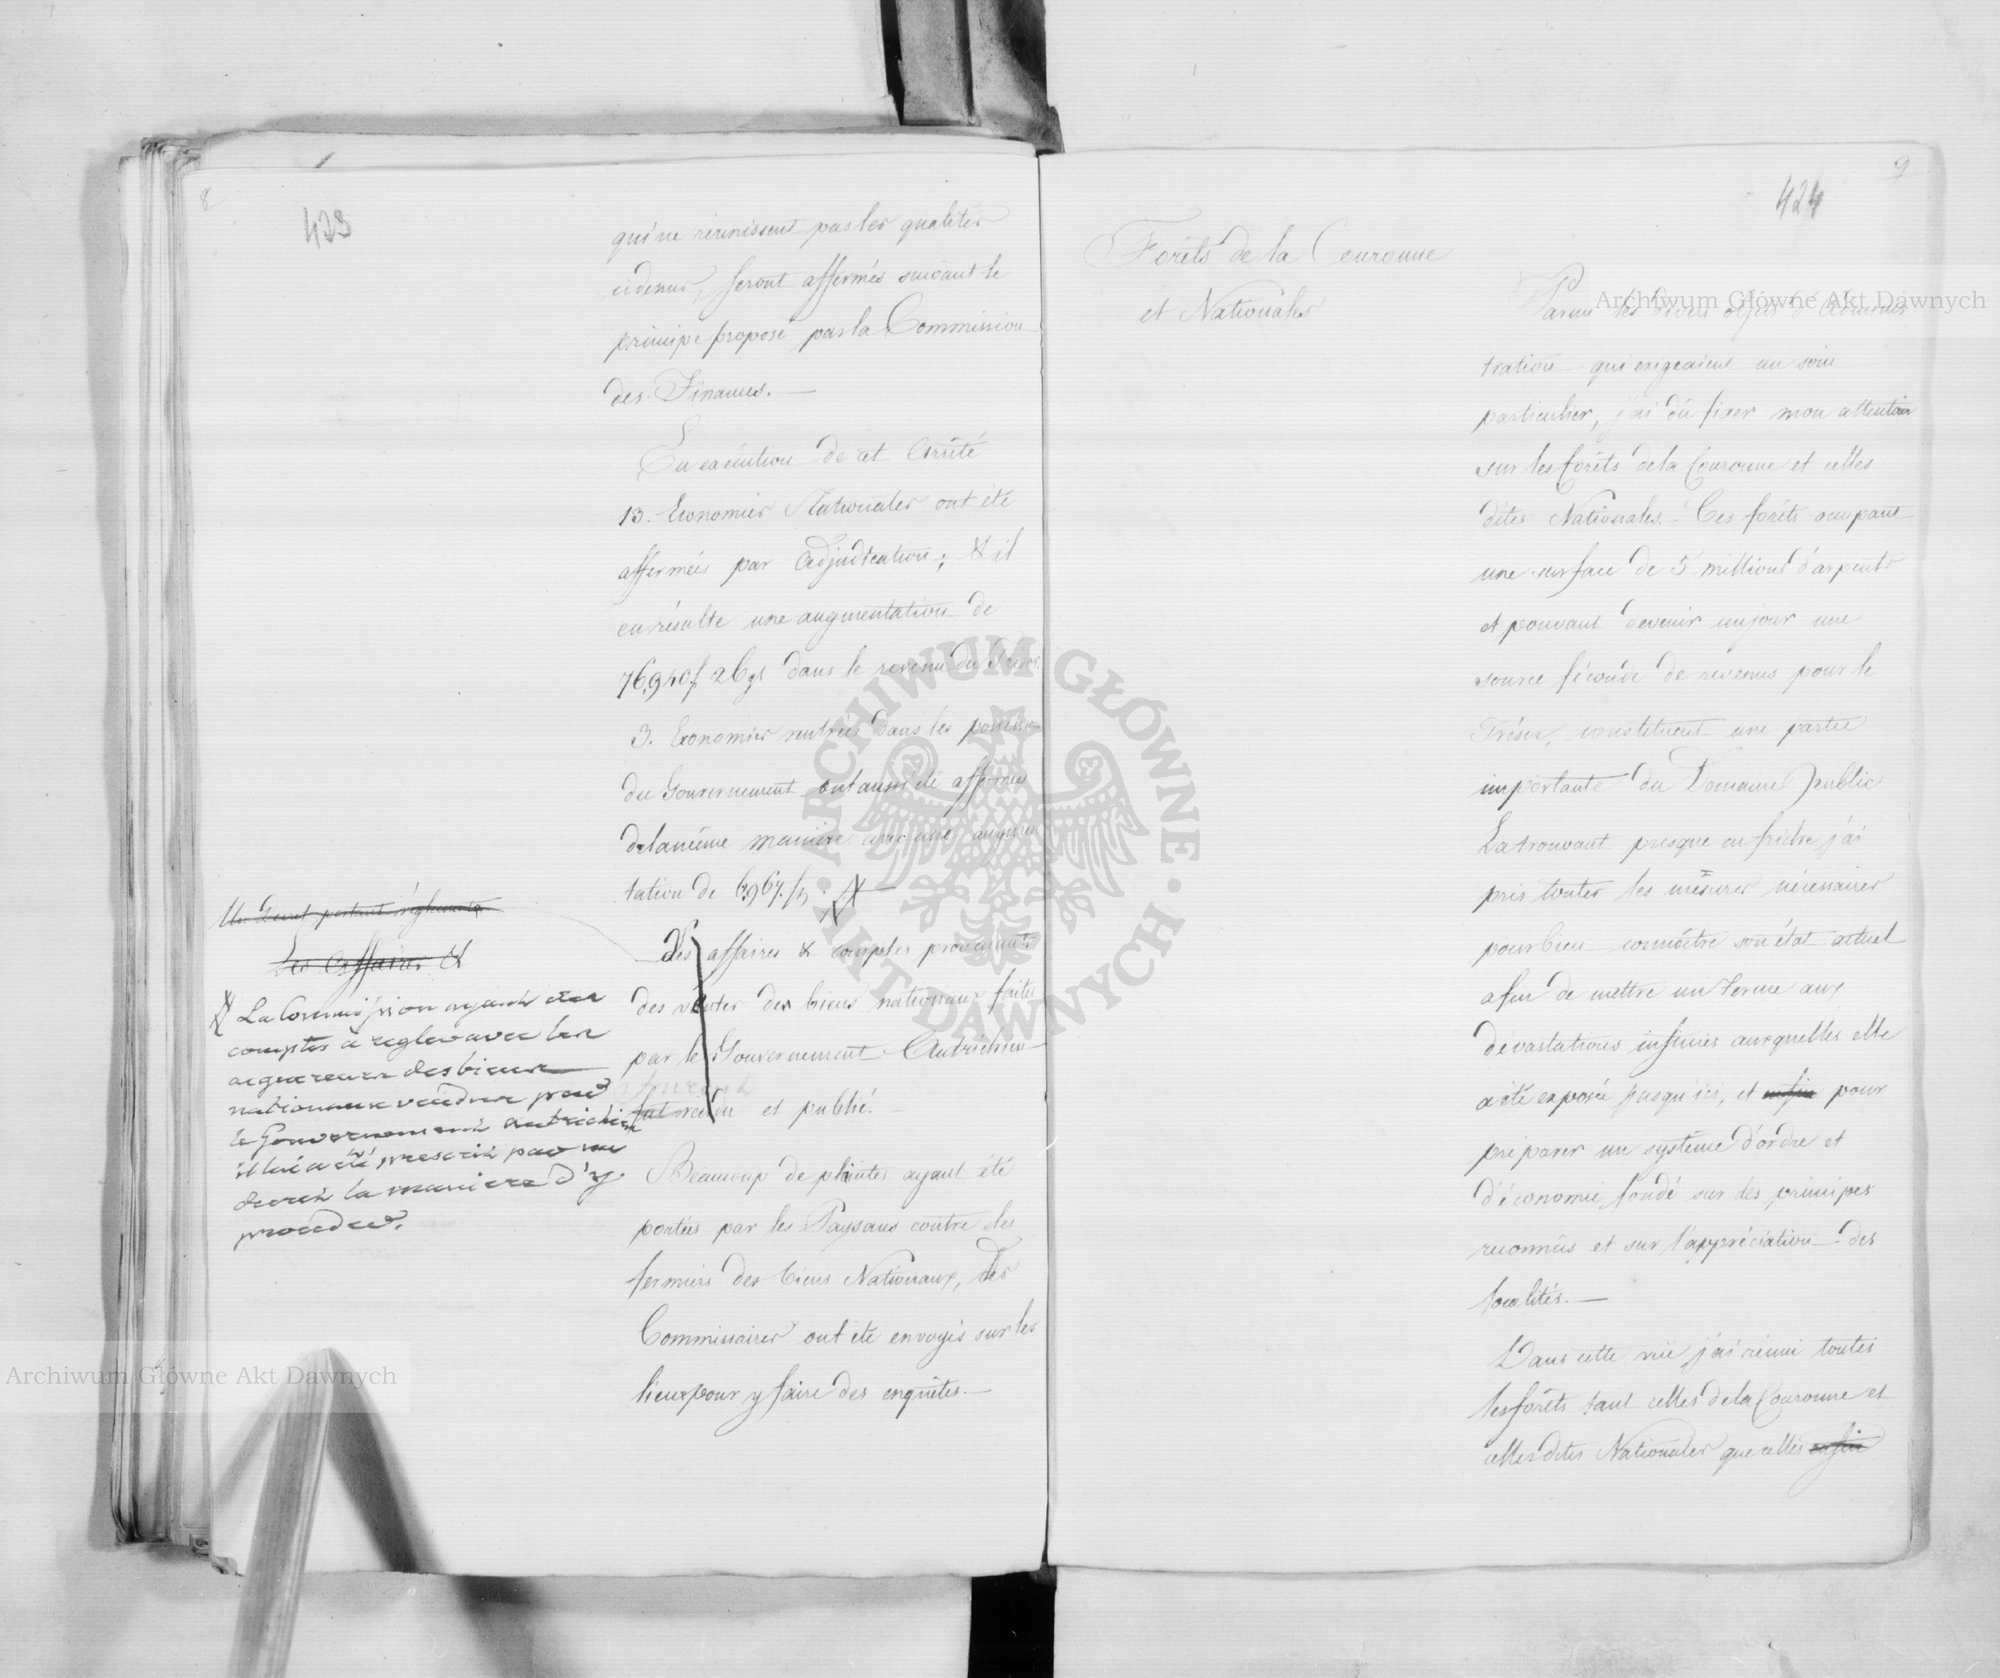 8
423
qui ne réunissent pas les qualités
cidessus, seront affermés suivant le
principe proposé par la Commission
des Finances. —
En exécution de cet Arrêté
13. Economies Nationales ont été
affermées par adjudication; & il
en résulte une augmentation de
76,940f 26gs dans le revenu du Trésor.
3. Economies rentrées dans les possessions
du Gouvernement ont aussi été affermées
de la même manière avec une augmen
tation de 6,967. f
Un Decret portant réglement
Les Affaires &
Les affaires & comptes provenants
des ventes des biens nationaux faites
par le Gouvernement Autrichien
fut rendu et publié. —
La Commission ayant des
comptes à regler avec les
acquereurs des biens
nationaux vendus par
le Gouvernement autrichien
il lui a été prescrit par un
decret la maniere d'y
proceder.
Beaucoup de plaintes ayant été
portées par les Paysans contre les
fermiers des biens Nationaux, Des
Commissaires ont été envoyés sur les
lieux pour y faire des enquêtes. —
9
424
Forêts de la Couronne
et Nationales
Parmi les divers objets d'Adminis
tration qui exigeaient un soin
particulier, j'ai dû fixer mon attention
sur les forêts de la Couronne et celles
dites Nationales. Ces forêts occupant
une surface de 5 millions d'arpents
et pouvant devenir un jour une
source féconde de revenus pour le
Trésor, constituent une partie
importante du Domaine public
La trouvant presque en friche j'ai
pris toutes les mesures nécessaires
pour bien connoître son état actuel
afin de mettre un terme aux
dévastations infinies auxquelles elle
a été exposée jusqu'ici, et enfin pour
préparer un système d'ordre et
d'économie fondé sur des principes
reconnus et sur l'appréciation des
localités. —
Dans cette vue j'ai réuni toutes
les forêts tant celles de la Couronne et
celles dites Nationales que celles enfin
Archiwum Główne Akt Dawnych
Archiwum Główne Akt Dawnych
ARCHIWUM GŁÓWNE · AKT DAWNYCH ·